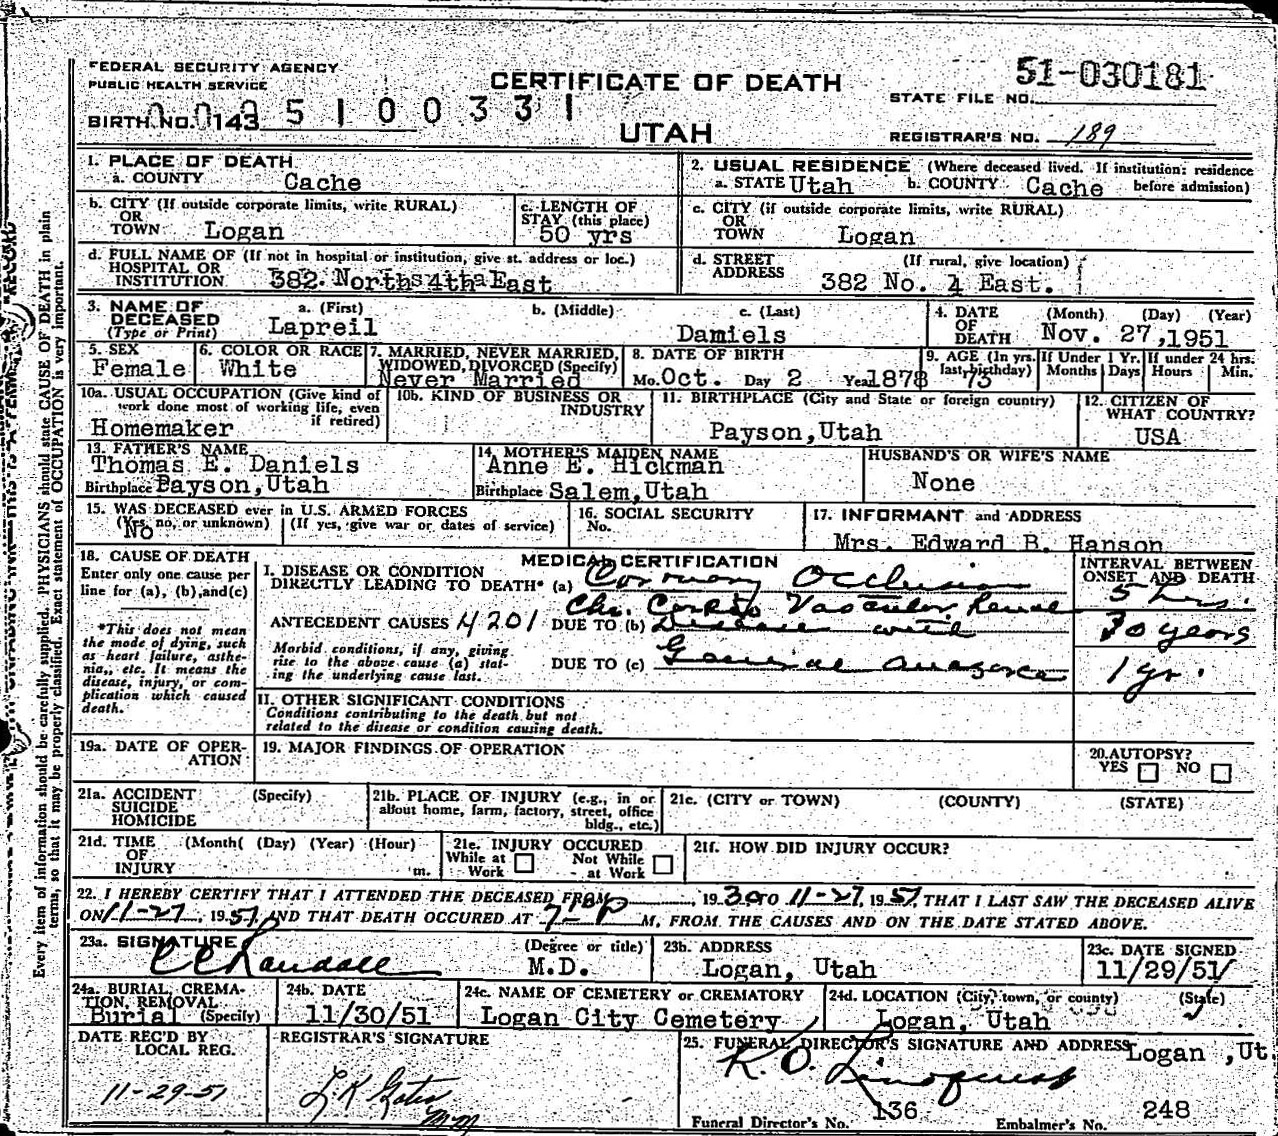 FEDERAL SECURITY AGENCY
PUBLIC HEALTH SERVICE
CERTIFICATE OF DEATH
UTAH
51-030181
STATE FILE NO.
BIRTH NO. 143 5100331
REGISTRAR'S NO. 189
1. PLACE OF DEATH
a. COUNTY Cache
2. USUAL RESIDENCE (Where deceased lived. If institution: residence before admission)
a. STATE Utah b. COUNTY Cache
b. CITY (If outside corporate limits, write RURAL)
OR
TOWN Logan
c. LENGTH OF
STAY (this place)
50 yrs
c. CITY (if outside corporate limits, write RURAL)
OR
TOWN Logan
d. FULL NAME OF (If not in hospital or institution, give st. address or loc.)
HOSPITAL OR
INSTITUTION 382 North 4th East
d. STREET (If rural, give location)
ADDRESS 382 No. 4 East.
3. NAME OF
DECEASED
(Type or Print)
a. (First) b. (Middle) c. (Last)
Lapreil Damiels
4. DATE (Month) (Day) (Year)
OF
DEATH Nov. 27,1951
5. SEX
Female
6. COLOR OR RACE
White
7. MARRIED, NEVER MARRIED,
WIDOWED, DIVORCED (Specify)
Never Married
8. DATE OF BIRTH
Mo. Oct. Day 2 Year 1878
9. AGE (In yrs.
last birthday)
73
If Under 1 Yr.
Months Days
If under 24 hrs.
Hours Min.
10a. USUAL OCCUPATION (Give kind of
work done most of working life, even
if retired)
Homemaker
10b. KIND OF BUSINESS OR
INDUSTRY
11. BIRTHPLACE (City and State or foreign country)
Payson,Utah
12. CITIZEN OF
WHAT COUNTRY?
USA
13. FATHER'S NAME
Thomas E. Daniels
Birthplace Payson,Utah
14. MOTHER'S MAIDEN NAME
Anne E. Hickman
Birthplace Salem,Utah
HUSBAND'S OR WIFE'S NAME
None
15. WAS DECEASED ever in U.S. ARMED FORCES
(Yes, no, or unknown) (If yes, give war or dates of service)
No
16. SOCIAL SECURITY
No.
17. INFORMANT and ADDRESS
Mrs. Edward B. Hanson
18. CAUSE OF DEATH
Enter only one cause per
line for (a), (b),and(c)
*This does not mean
the mode of dying, such
as heart failure, asthe-
nia, etc. It means the
disease, injury, or com-
plication which caused
death.
MEDICAL CERTIFICATION
I. DISEASE OR CONDITION
DIRECTLY LEADING TO DEATH* (a) Coronary Occlusion
Chr. Cardio Vascular Renal
ANTECEDENT CAUSES 4201 DUE TO (b) Disease with
Morbid conditions, if any, giving
rise to the above cause (a) stat-
ing the underlying cause last.
DUE TO (c) General anasarca
INTERVAL BETWEEN
ONSET AND DEATH
5 hrs.
30 years
1 yr.
II. OTHER SIGNIFICANT CONDITIONS
Conditions contributing to the death but not
related to the disease or condition causing death.
19a. DATE OF OPER-
ATION
19. MAJOR FINDINGS OF OPERATION
20. AUTOPSY?
YES NO
21a. ACCIDENT (Specify)
SUICIDE
HOMICIDE
21b. PLACE OF INJURY (e.g., in or
about home, farm, factory, street, office
bldg., etc.)
21c. (CITY or TOWN) (COUNTY) (STATE)
21d. TIME (Month( (Day) (Year) (Hour)
OF
INJURY m.
21e. INJURY OCCURED
While at Work Not While at Work
21f. HOW DID INJURY OCCUR?
22. I HEREBY CERTIFY THAT I ATTENDED THE DECEASED FROM , 1930 TO 11-27, 1951, THAT I LAST SAW THE DECEASED ALIVE
ON 11-27, 1951, AND THAT DEATH OCCURED AT 7-P M, FROM THE CAUSES AND ON THE DATE STATED ABOVE.
23a. SIGNATURE (Degree or title)
CC Randall M.D.
23b. ADDRESS
Logan, Utah
23c. DATE SIGNED
11/29/51
24a. BURIAL, CREMA-
TION, REMOVAL
Burial (Specify)
24b. DATE
11/30/51
24c. NAME OF CEMETERY or CREMATORY
Logan City Cemetery
24d. LOCATION (City, town, or county) (State)
Logan, Utah
DATE REC'D BY
LOCAL REG.
11-29-51
REGISTRAR'S SIGNATURE
25. FUNERAL DIRECTOR'S SIGNATURE AND ADDRESS Logan ,Ut.
K. O. Lindquist
Funeral Director's No. 136 Embalmer's No. 248
Every item of information should be carefully supplied. PHYSICIANS should state CAUSE OF DEATH in plain
terms, so that it may be properly classified. Exact statement of OCCUPATION is very important.